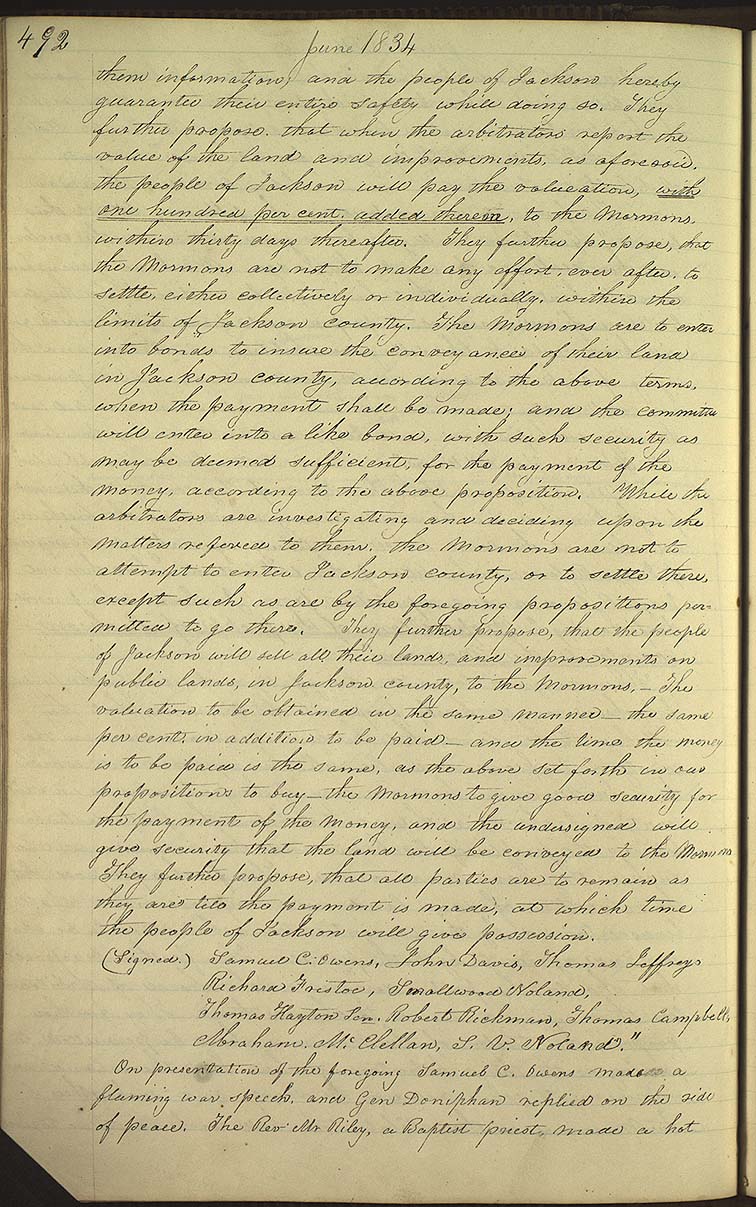 492
June 1834
them information; and the people of Jackson hereby
guarantee their entire safety while doing so. They
further propose. that when the arbitrators report the
value of the land and improvements, as aforesaid.
the people of Jackson will pay the valueation, with
one hundred per cent. added thereon, to the Mormons.
within thirty days thereafter. They further propose, that
the Mormons are not to make any effort, ever after, to
settle, either collectively or individually. within the
limits of Jackson county. The Mormons are to enter
into bonds to insure the conveyance of their land
in Jackson county, according to the above terms.
when the payment shall be made; and the committee
will enter into a like bond, with such security as
may be deemed sufficient, for the payment of the
money, according to the above proposition. While the
arbitrators are investigating and deciding upon the
matters refered to them. the Mormons are not to
attempt to enter Jackson county, or to settle there,
except such as are by the foregoing propositions per-
mitted to go there. They further propose, that the people
of Jackson will sell all their lands, and improvements on
public lands, in Jackson county, to the Mormons,— The
valuation to be obtained in the same manner— the same
per cent. in addition to be paid— and the time the money
is to be paid is the same, as the above set forth in our
propositions to buy— the Mormons to give good security for
the payment of the money, and the undersigned will
give security that the land will be conveyed to the Mormons
They further propose, that all parties are to remain as
they are till the payment is made, at which time
the people of Jackson will give possession.
(Signed.) Samuel C. Owens, John Davis, Thomas Jeffreys
Richard Fristoe, Smallwood Noland,
Thomas Hayton Sen. Robert Rickman, Thomas Campbell,
Abraham. McClellan, S. V. Noland."
On presentation of the foregoing Samuel C. Owens made a
flaming war speech. and Gen Doniphan replied on the side
of peace. The Rev. Mr Riley, a Baptist priest, made a hot